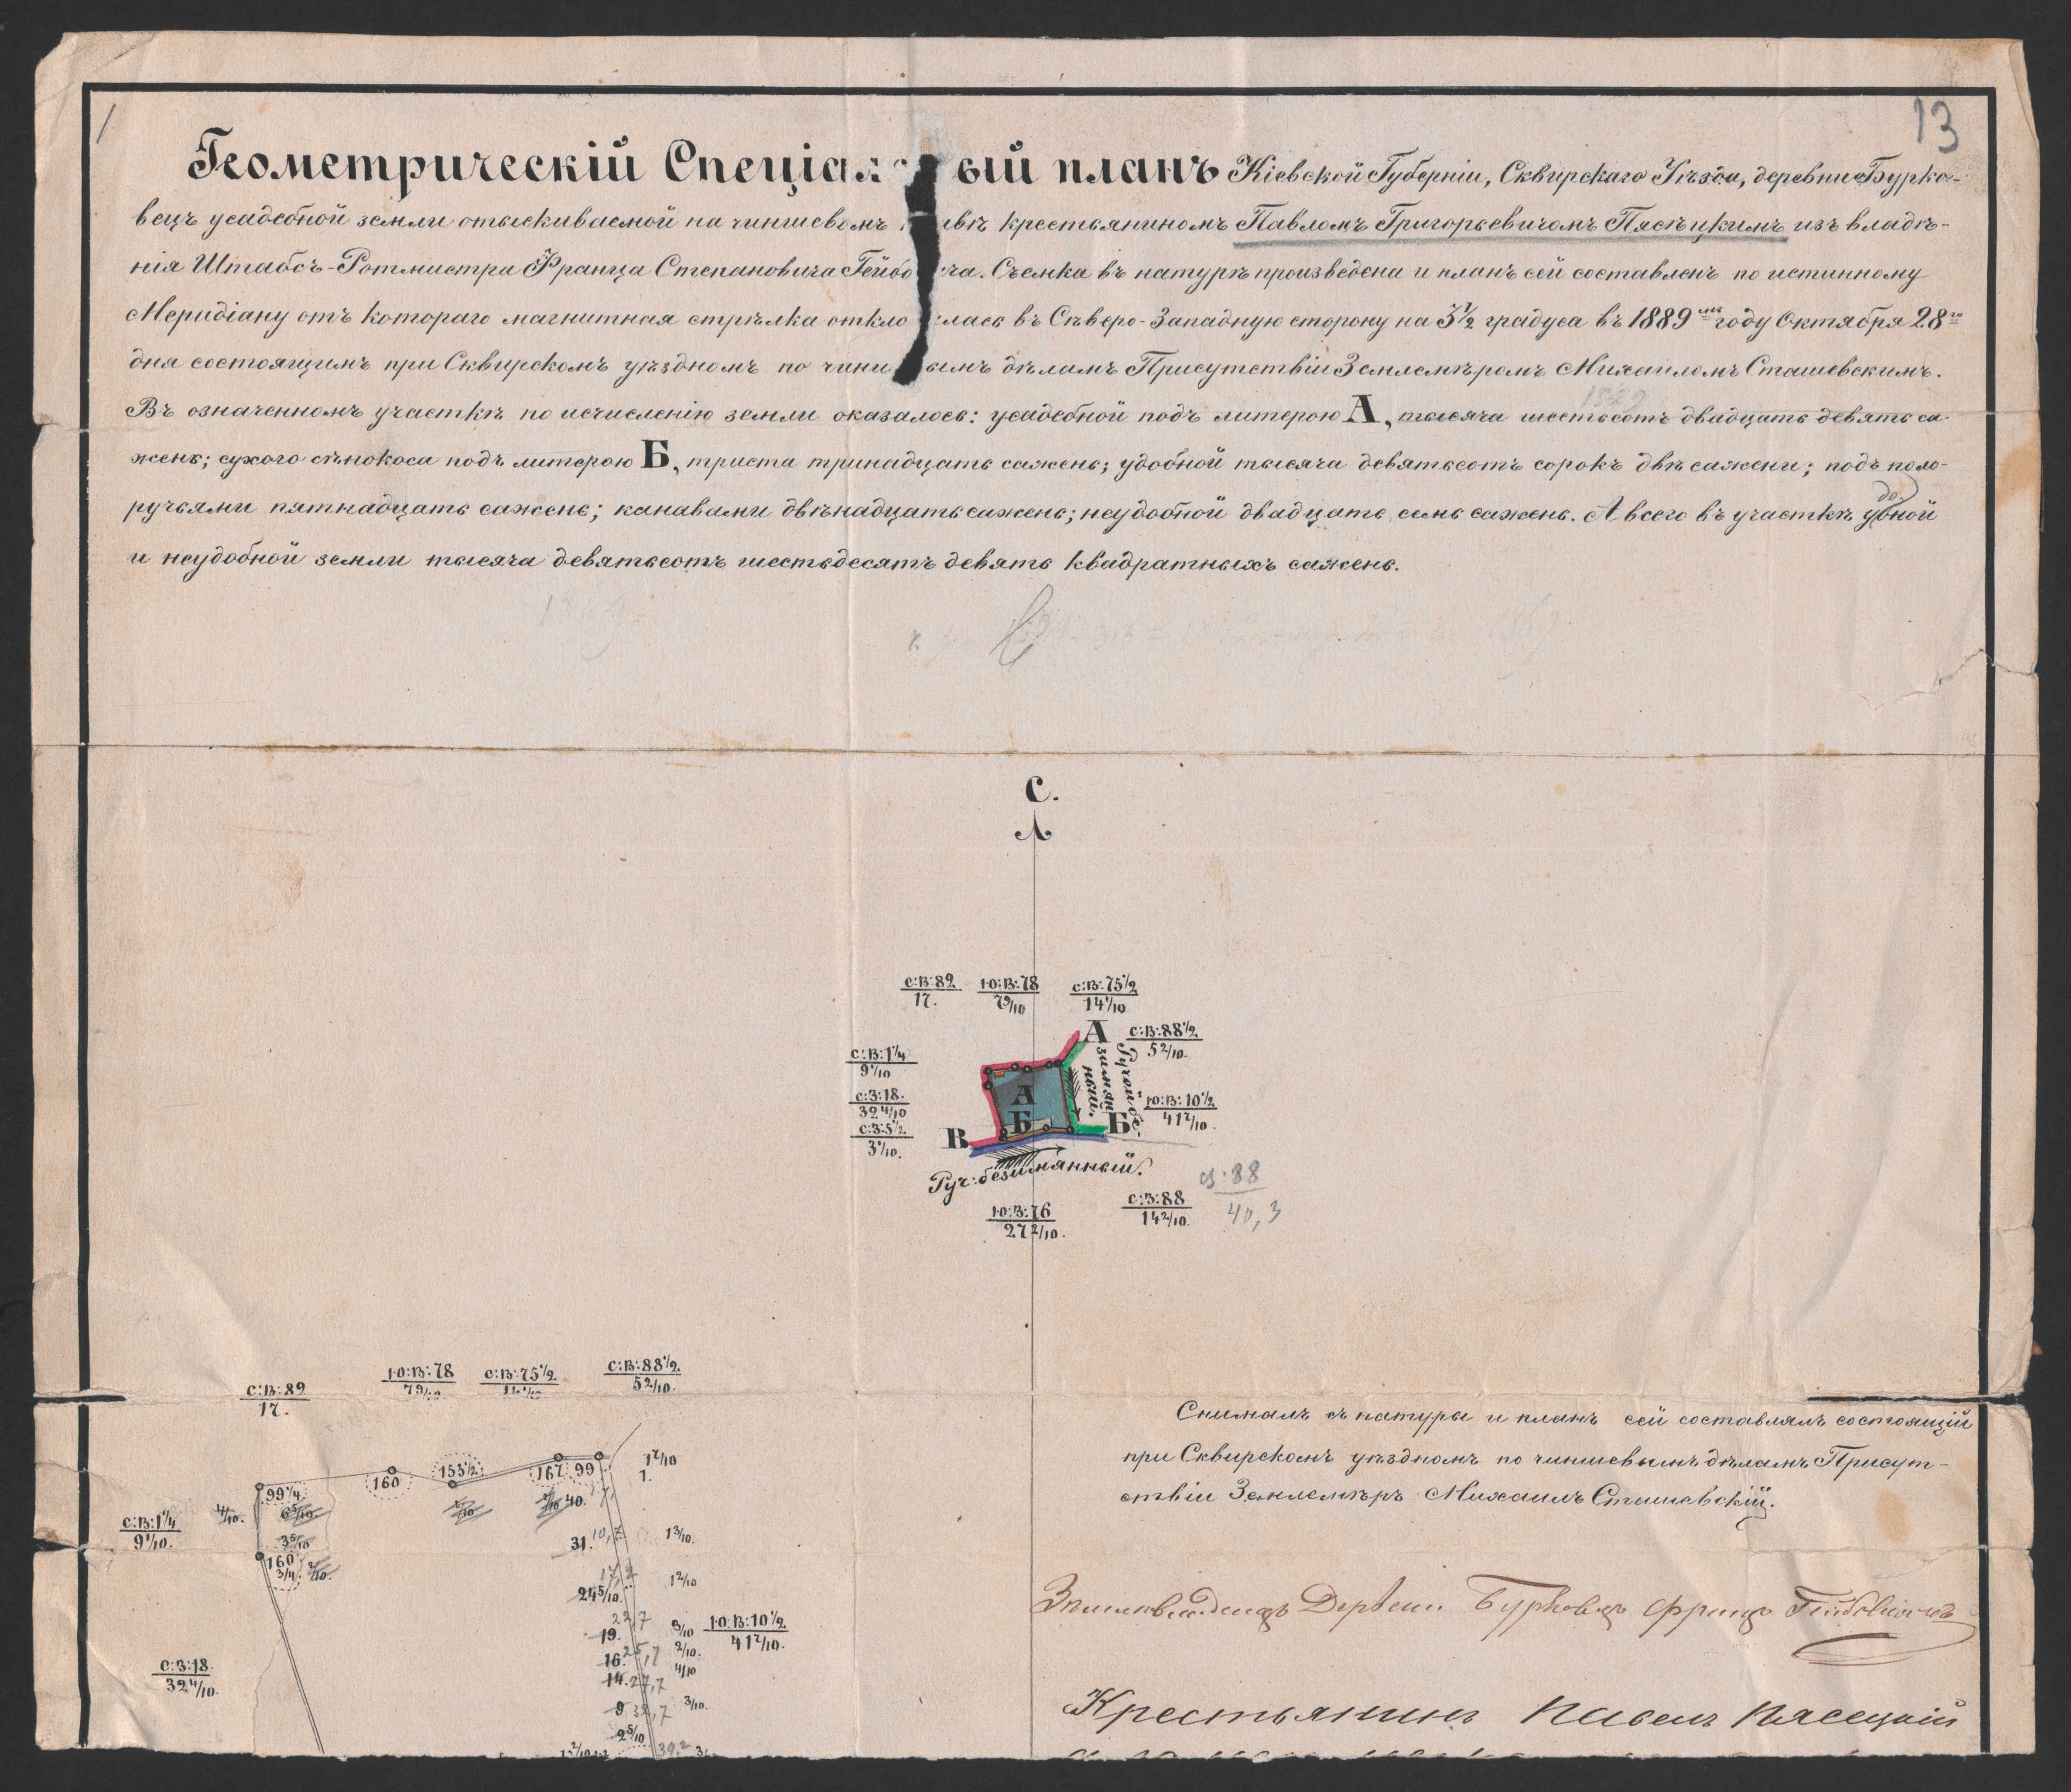 1
13
Геометрическій Спеціал ый планъ Кіевской Губерніи, Сквирскаго Уѣзда, деревни Бурко-
вецъ усадебной земли отыскиваемой на чиншевомъ авѣ крестьяниномъ Павломъ Григорьевичомъ Пясѣцкимъ изъ владѣ-
нія Штабсъ-Ротмистра Франца Степановича Гейбо ча. Съемка въ натурѣ произведена и планъ сей составленъ по истинному
Меридіану отъ котораго магнитная стрѣлка откло лась въ Сѣверо-Западную сторону на 3½ градуса въ 1889 мъ году Октября 28го
дня состоящимъ при Сквирскомъ уѣздномъ по чинш ымъ дѣламъ Присутствіи Землемѣромъ Михаиломъ Сташевскимъ.
Въ означенномъ участкѣ по исчисленію земли оказалось: усадебной подъ литерою А, тысяча шестьсотъ двадцать девять са-
жень; сухого сѣнокоса подъ литерою Б, триста тринадцать сажень; удобной тысяча девятьсотъ сорокъ двѣ сажени; подъ поло-
ручьями пятнадцать сажень; канавами двѣнадцать сажень; неудобной двадцать семь сажень. А всего въ участкѣ удобной
и неудобной земли тысяча девятьсотъ шестьдесятъ девять квадратныхъ сажень.
С.
С:В:89 Ю:В:78 С:В:75½
17. 7 9/10 14 1/10
А С:В:88½
5 2/10.
С:В:1¼
9 1/10
Ручой бе-
зимян
ный.
С:З:18.
32 4/10
А
Ю:В:10½
41 7/10.
С:З:5½.
3 1/10.
В
Б
Б
Руч: безимянный.
Ю:З:76
27 2/10.
С:З:88
14 2/10.
сз:88
40,3
С:В:89 Ю:В:78 С:В:75½ С:В:88½
17. 7 9/10 5 2/10.
99¼ 160 153½ 167 99
1 7/10
1.
4/10. 6 5/10
40.
С:В:1¼
9 1/10.
3 5/10
31. 10,7
1 3/10.
160 ¾
2/10.
17,2
24 5/10.
1 2/10
22,7
19.
9/10
Ю:В:10½
41 7/10.
16. 25,7
2/10.
14. 27,7
4/10
С:З:18.
32 4/10.
9 32,7
3/10.
2 5/10
39,2
Снималъ съ натуры и планъ сей составлялъ состоящій
при Сквирскомъ уѣздномъ по чиншевымъ дѣламъ Присут-
ствіи Землемѣръ Михаилъ Сташевскій.
Землевладелецъ Деревни Бурковецъ Францъ Гейбовичъ
Крестьянинъ Павелъ Пясецкій